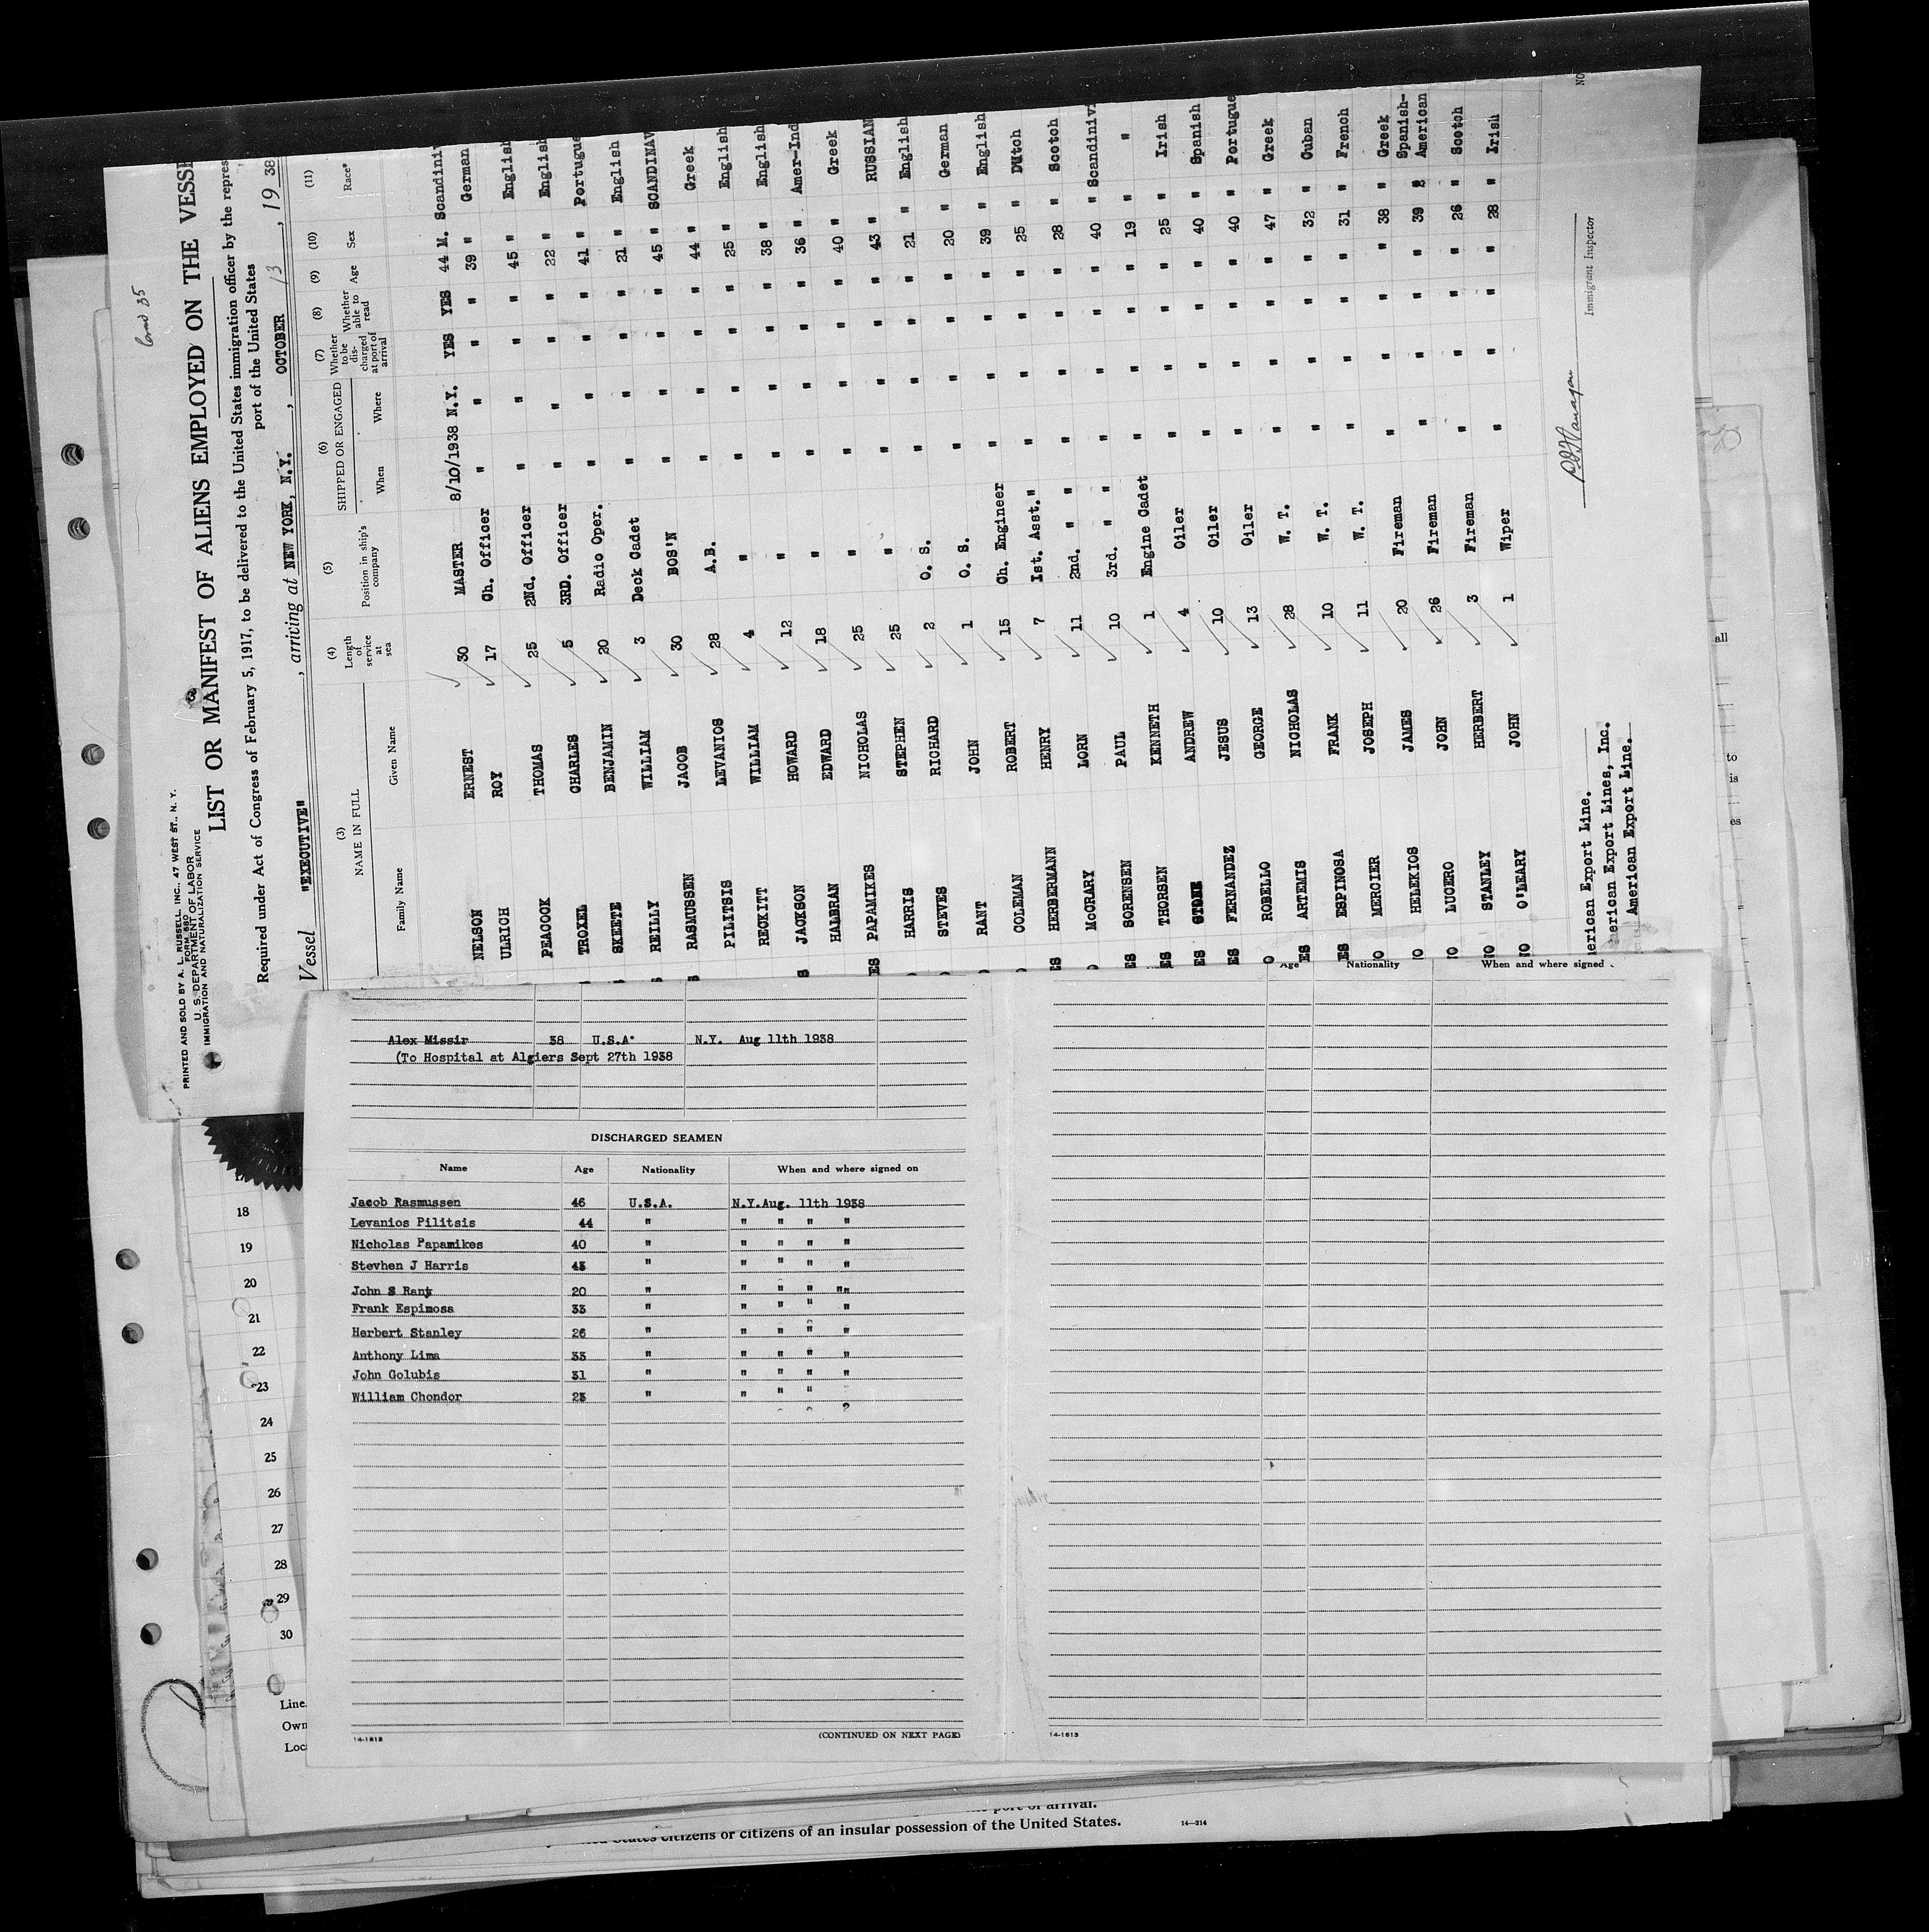 PRINTED AND SOLD BY A. L. RUSSELL, INC., 47 WEST ST., N. Y.
FORM 680
U. S. DEPARTMENT OF LABOR
IMMIGRATION AND NATURALIZATION SERVICE
LIST OR MANIFEST OF ALIENS EMPLOYED ON THE VESSE
Required under Act of Congress of February 5, 1917, to be delivered to the United States immigration officer by the repres
port of the United States
Vessel "EXECUTIVE" , arriving at NEW YORK, N.Y. , OCTOBER 13 , 19 38
(3) (4) (5) (6) (7) (8) (9) (10) (11)
NAME IN FULL Length of service at sea Position in ship's company SHIPPED OR ENGAGED Whether to be discharged at port of arrival Whether able to read Age Sex Race*
Family Name Given Name When Where
NELSON ERNEST 30 MASTER 8/10/1938 N.Y. YES YES 44 M. Scandiniv
ULRICH ROY 17 Ch. Officer " " " " 39 " German
PEACOCK THOMAS 25 2Nd. Officer " " " " 45 " English
TROXEL CHARLES 5 3RD. Officer " " " " 22 " English
SKEETE BENJAMIN 20 Radio Oper. " " " " 41 " Portugue
REILLY WILLIAM 3 Deck Cadet " " " " 21 " English
RASMUSSEN JACOB 30 BOS'N " " " " 45 " SCANDINAV
PILITSIS LEVANIOS 28 A.B. " " " " 44 " Greek
RECKITT WILLIAM 4 " " " " " 25 " English
JACKSON HOWARD 12 " " " " " 38 " English
HALBRAN EDWARD 18 " " " " " 36 " Amer-Ind
PAPAMIKES NICHOLAS 25 " " " " " 40 " Greek
HARRIS STEPHEN 25 " " " " " 43 " RUSSIAN
STEVES RICHARD 2 O. S. " " " " 21 " English
RANT JOHN 1 O. S. " " " " 20 " German
COLEMAN ROBERT 15 Ch. Engineer " " " " 39 " English
HERBERMANN HENRY 7 Ist. Asst." " " " " 25 " Dutch
McCRARY LORN 11 2nd. " " " " " " 28 " Scotch
SORENSEN PAUL 10 3rd. " " " " " " 40 " Scandiniv
THORSEN KENNETH 1 Engine Cadet " " " " 19 " "
STONE ANDREW 4 Oiler " " " " 25 " Irish
FERNANDEZ JESUS 10 Oiler " " " " 40 " Spanish
ROBELLO GEORGE 13 Oiler " " " " 40 " Portugue
ARTEMIS NICHOLAS 28 W. T. " " " " 47 " Greek
ESPINOSA FRANK 10 W. T. " " " " 32 " Cuban
MERCIER JOSEPH 11 W. T. " " " " 31 " French
HELEKIOS JAMES 20 Fireman " " " " 38 " Greek
LUCERO JOHN 26 Fireman " " " " 39 " Spanish-American
STANLEY HERBERT 3 Fireman " " " " 26 " Scotch
O'LEARY JOHN 1 Wiper " " " " 28 " Irish
erican Export Line.
erican Export Lines, Inc.
American Export Line.
Immigrant Inspector
Age Nationality When and where signed
Alex Missir 38 U.S.A. N.Y. Aug 11th 1938
(To Hospital at Algiers Sept 27th 1938
DISCHARGED SEAMEN
Name Age Nationality When and where signed on
Jacob Rasmussen 46 U.S.A. N.Y.Aug. 11th 1938
Levanios Pilitsis 44 " " " " "
Nicholas Papamikes 40 " " " " "
Stevhen J Harris 43 " " " " "
John S Rant 20 " " " " ""
Frank Espimosa 33 " " " " "
Herbert Stanley 26 " " " " "
Anthony Lima 33 " " " " "
John Golubis 31 " " " " "
William Chondor 23 " " " "
14-1613 (CONTINUED ON NEXT PAGE) 14-1613
18
19
20
21
22
23
24
25
26
27
28
29
30
Line
Own
Loc
all
to
is
es
port of arrival.
citizens or citizens of an insular possession of the United States. 14—214